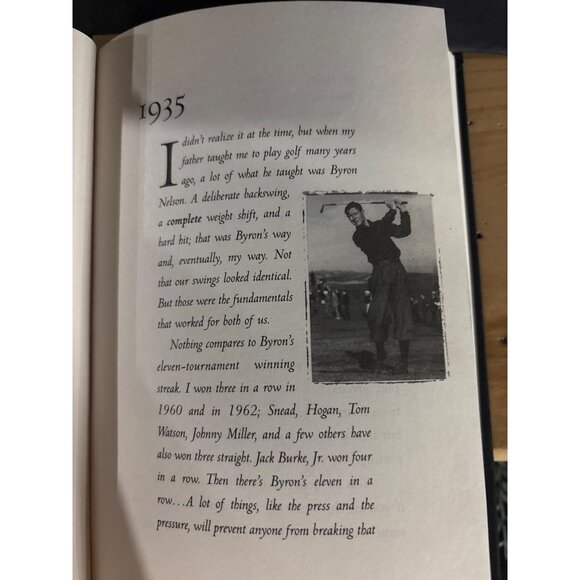 1935
I didn't realize it at the time, but when my
father taught me to play golf many years
ago, a lot of what he taught was Byron
Nelson. A deliberate backswing,
a complete weight shift, and a
hard hit; that was Byron's way
and, eventually, my way. Not
that our swings looked identical.
But those were the fundamentals
that worked for both of us.
Nothing compares to Byron's
eleven-tournament winning
streak. I won three in a row in
1960 and in 1962; Snead, Hogan, Tom
Watson, Johnny Miller, and a few others have
also won three straight. Jack Burke, Jr. won four
in a row. Then there's Byron's eleven in a
row...A lot of things, like the press and the
pressure, will prevent anyone from breaking that